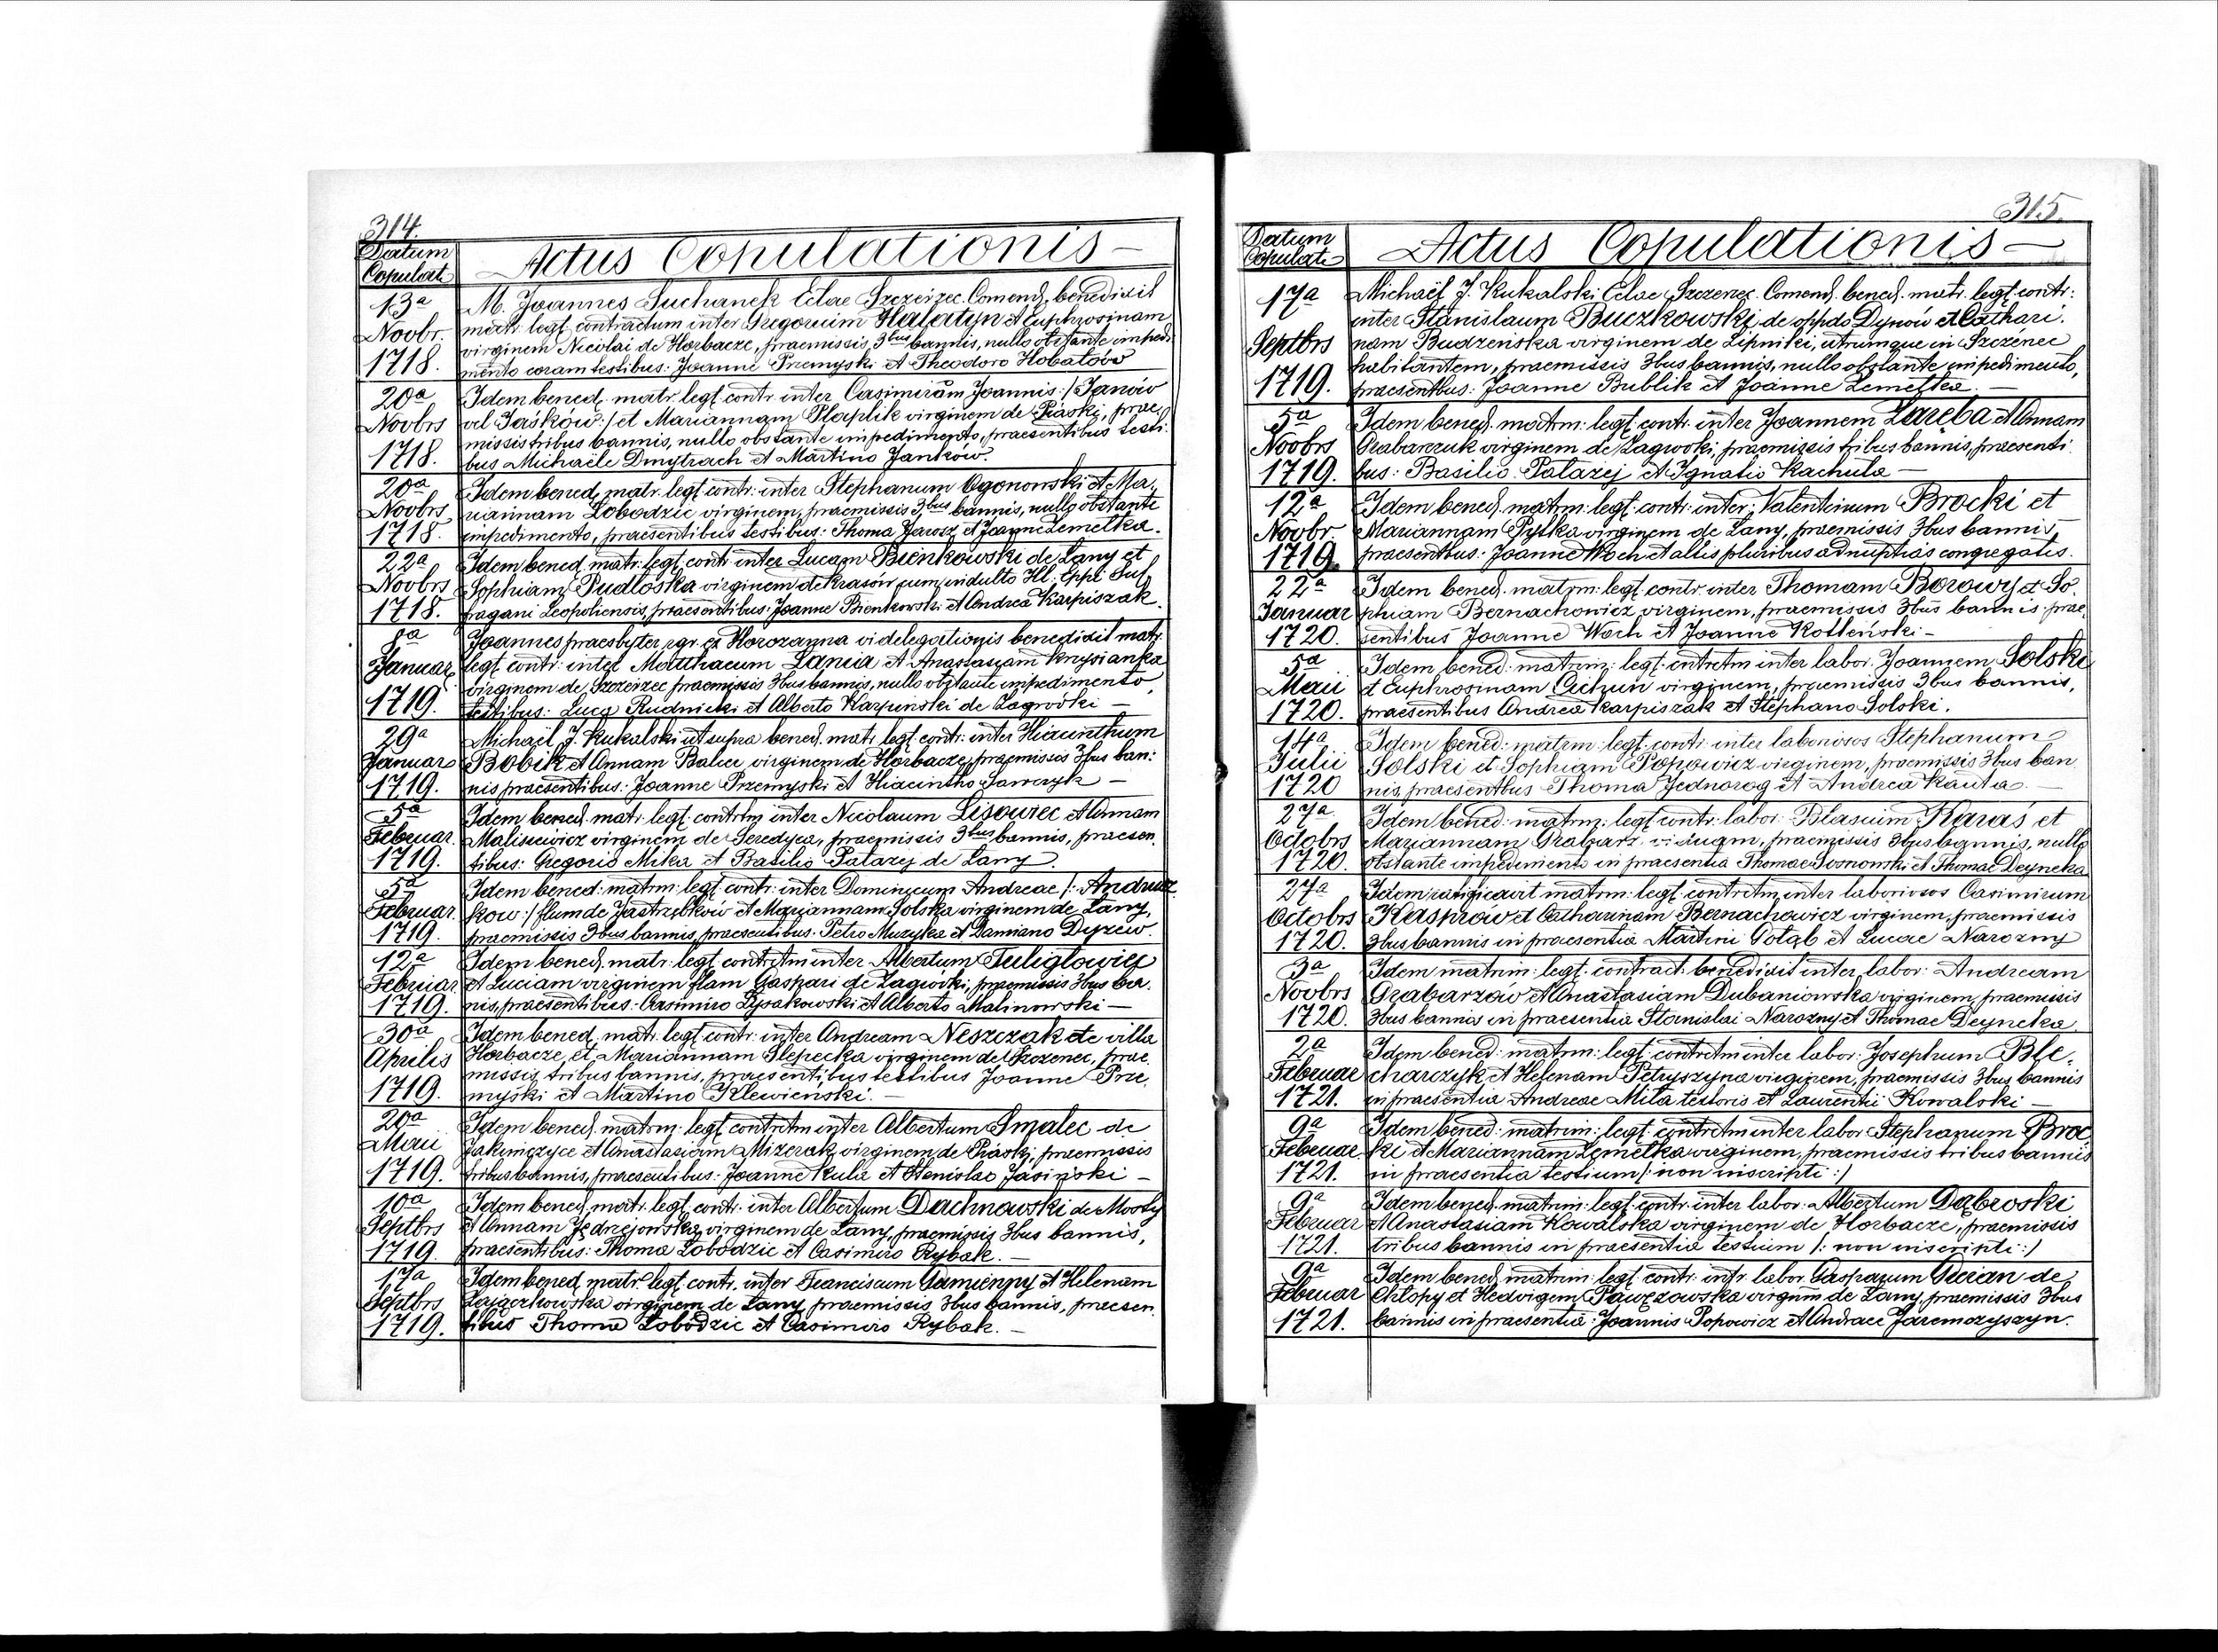 314.
Datum
Copulat.
Actus Copulationis —
13a
Novbr.
1718.
M. Joannes Suchanek Eclae Szczeirzec Comend. benedixit
matr. legt. contractum inter Gregorium Halatyn et Euphrosinam
virginem Nicolai de Horbacze, praemissis 3bus bannis, nullo obstante impedi-
mento coram testibus: Joanne Przemyski et Theodoro Hobatow
20a
Novbrs
1718.
Idem bened. matr. legt. contr. inter Casimirum Joannis: /:Janów
vel Jaśków:/ et Mariannam Ptaplik virginem de Piaski, prae-
missis tribus bannis, nullo obstante impedimento, praesentibus testi-
bus Michaële Dmytrach et Martino Janków.
20a
Novbrs
1718.
Idem bened. matr. legt. contr. inter Stephanum Ogonowski et Ma-
riannam Lobodzic virginem, praemissis 3bus bannis, nullo obstante
impedimento, praesentibus testibus: Thoma Jarosz et Joanne Lemetka.
22a
Novbrs
1718.
Idem bened. matr. legt. contr. inter Lucam Bieńkowski de Lany et
Sophiam Pudloska virginem de Krasów cum indulto Ill. Eppi Suf-
fragani Leopoliensis, praesentibus: Joanne Bienkowski et Andrea Karpiszak.
8a
Januar.
1719.
Joannes praesbyter rgr. ex Horozanna vi delegationis benedixit matr.
legt. contr. inter Matthaeum Lania et Anastasiam Knysianka
virginem de Szczeirzec praemissis 3bus bannis, nullo obstante impedimento,
testibus: Luca Rudnicki et Alberto Karpinski de Zagrodki —
29a
Januar
1719.
Michaël J. Kukalski ut supra bened. matr. legt. contr. inter Hiacinthum
Bobik et Annam Balice virginem de Horbacze, praemissis 3bus ban:
nis praesentibus: Joanne Przemyski et Hiacintho Sawczyk —
5a
Februar.
1719.
Idem bened. matr. legt. contrtm inter Nicolaum Lisowiec et Annam
Malisiewicz virginem de Seredyca, praemissis 3bus bannis, praesen-
tibus: Gregorio Mika et Basilio Palazej de Lany.
5a
Februar.
1719.
Idem bened. matrm. legt. contr. inter Dominicum Andreae /: Andrusz
kow:/ flum de Jastrzębków et Mariannam Solska virginem de Lany,
praemissis 3bus bannis, praesentibus: Petro Muzyka et Damiano Dyziw.
12a
Februar
1719.
Idem bened. matr. legt. contrctm inter Albertum Tuliglowicz
et Luciam virginem flam Gaspari de Zagrodki, praemissis 3bus ban-
nis, praesentibus: Casimiro Lysakowski et Alberto Malinowski —
30a
Aprilis
1719.
Idem bened. matr. legt. contr. inter Andream Neszczak de villa
Horbacze, et Mariannam Slepecka virginem de Szczerzec, prae-
missis tribus bannis, praesentibus testibus Joanne Prze-
myski et Martino Klewieński. —
20a
Maii
1719.
Idem bened. matrm. legt. contrctm inter Albertum Smalec de
Jakimczyce et Anastasiam Mizerak virginem de Piaski, praemissis
tribus bannis, praesentibus: Joanne Kula et Stenislao Jasiński —
10a
Septbrs
1719.
Idem bened. matr. legt. contr. inter Albertum Dachnowski de Mosty
et Annam Jędrzejowska virginem de Lany, praemissis 3bus bannis,
praesentibus: Thoma Lobodzic et Casimiro Rybak. —
17a
Septbrs
1719.
Idem bened. matr. legt. contr. inter Franciscum Kamienny et Helenam
Zajączkowska virginem de Lany, praemissis 3bus bannis, praesen-
tibus Thoma Lobodzic et Casimiro Rybak. —
315.
Datum
Copulat.
Actus Copulationis —
17a
Septbrs
1719.
Michaël J. Kukalski Eclae Szczerzec Comend. bened. matr. legt. contr:
inter Stanislaum Buczkowski de oppdo Dynów et Cathari-
nam Budzeńska virginem de Lipniki, utrumque in Szczérzec
habitantem, praemissis 3bus bannis, nullo obstante impedimento,
praesentbus: Joanne Bublik et Joanne Lemetka. —
5a
Novbrs
1719.
Idem bened. matrm. legt. contr. inter Joannem Zaręba et Annam
Grabarczuk virginem de Zagrodki, praemissis tribus bannis, praesenti-
bus: Basilio Palazej et Ignatio Kachula —
12a
Novbr.
1719.
Idem bened. matrm. legt. contr. inter Valentinum Brocki et
Mariannam Pytka virginem de Lany, praemissis 3bus bannis,
praesentbus: Joanne Woch et aliis pluribus ad nuptias congregatis.
22a
Januar
1720.
Idem bened. matrm. legt. contr. inter Thomam Borowy et So-
phiam Bernachowicz virginem, praemissis 3bus bannis prae-
sentibus Joanne Woch et Joanne Kotleński —
5a
Maii
1720.
Idem bened. matrim. legt. contrctm inter labor. Joannem Solski
et Euphrosinam Cichun virginem, praemissis 3bus bannis,
praesentibus Andrea Karpiszak et Stephano Solski.
14a
Julii
1720
Idem bened: matrm: legt. contr. inter laboriosos Stephanum
Solski et Sophiam Popowicz virginem, praemissis 3bus ban
nis, praesentbus Thoma Jednorog et Andrea Kauta. —
27a
Octobrs
1720.
Idem bened: matrm: legt. contr. labor. Blasium Karaś et
Mariannam Grabarz viduam, praemissis 3bus bannis, nullo
obstante impedimento in praesentia Thomae Sosnowski et Thomae Deyneka
27a
Octobrs
1720.
Idem ratificavit matrm: legt. contrctm inter laboriosos Casimirum
Kasprów et Catharinam Bernachowicz virginem, praemissis
3bus bannis in praesentia Martini Gołąb et Lucae Narozny
3a
Novbrs
1720.
Idem matrim: legt. contract. benedixit inter labor: Andream
Grabarzów et Anastasiam Dubaniowska virginem, praemissis
3bus bannis in praesentia Stanislai Narozny et Thomae Deyneka.
2a
Februar
1721.
Idem bened: matrm: legt. contrctm inter labor: Josephum Ble-
charczyk et Helenam Petryszyna virginem, praemissis 3bus bannis
in praesentia Andreae Mila textoris et Laurentii Kowalski —
9a
Februar
1721.
Idem bened: matrim: legt. contrctm inter labor: Stephanum Broc-
ki et Mariannam Lemetka virginem, praemissis tribus bannis
in praesentia testium /: non inscripti :/
9a
Februar
1721.
Idem bened. matrim. legt. contr. inter labor: Albertum Dąbroski
et Anastasiam Kowalska virginem de Horbacze, praemissis
tribus bannis in praesentia testium /: non inscripti :/
9a
Februar
1721.
Idem bened. matrim: legt. contr. intr. labor. Gasparum Decian de
Chłopy et Hedvigem Pawęzowska virginm de Lany, praemissis 3bus
bannis in praesentia: Joannis Popowicz et Andreae Jaremczyszyn.